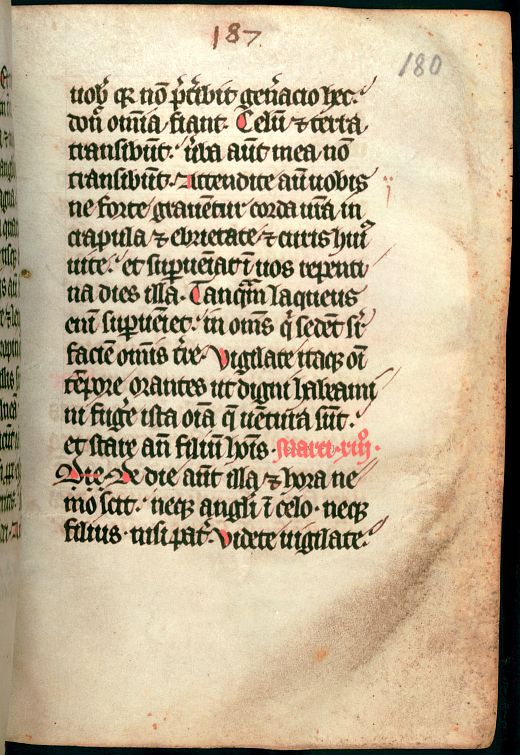 187
180
uob̄ qꝛ nō p̄t͛ibit gen͛acio hec.
don̄ om̄ia fiant. Celū ⁊ terra
transibūt. u͛ba aūt mea nō
transibūt. Attendite aū uobis
ne forte grauēt͛ corda ur̄a in
crapula ⁊ ebrietate ⁊ curis hui᷒
uite. et sup͛ueīat ī uos repenti
na dies illa. Tanqm̄ laqueus
enī sup͛ueniet. in omēs q̄ sedēt sr̄
faciē omīs t͛re. Vigilate itaqꝫ oī
tēpore orantes ut digni habeami
ni fug͛e ista oīa q̄ uētura sūt.
et stare an̄ filiū hoīs. Marci xiij.
Die De die aūt illa ⁊ hora ne
mo scit. neqꝫ angli ī celo. neqꝫ
filius. nisi pat͛. Videte uigilate.